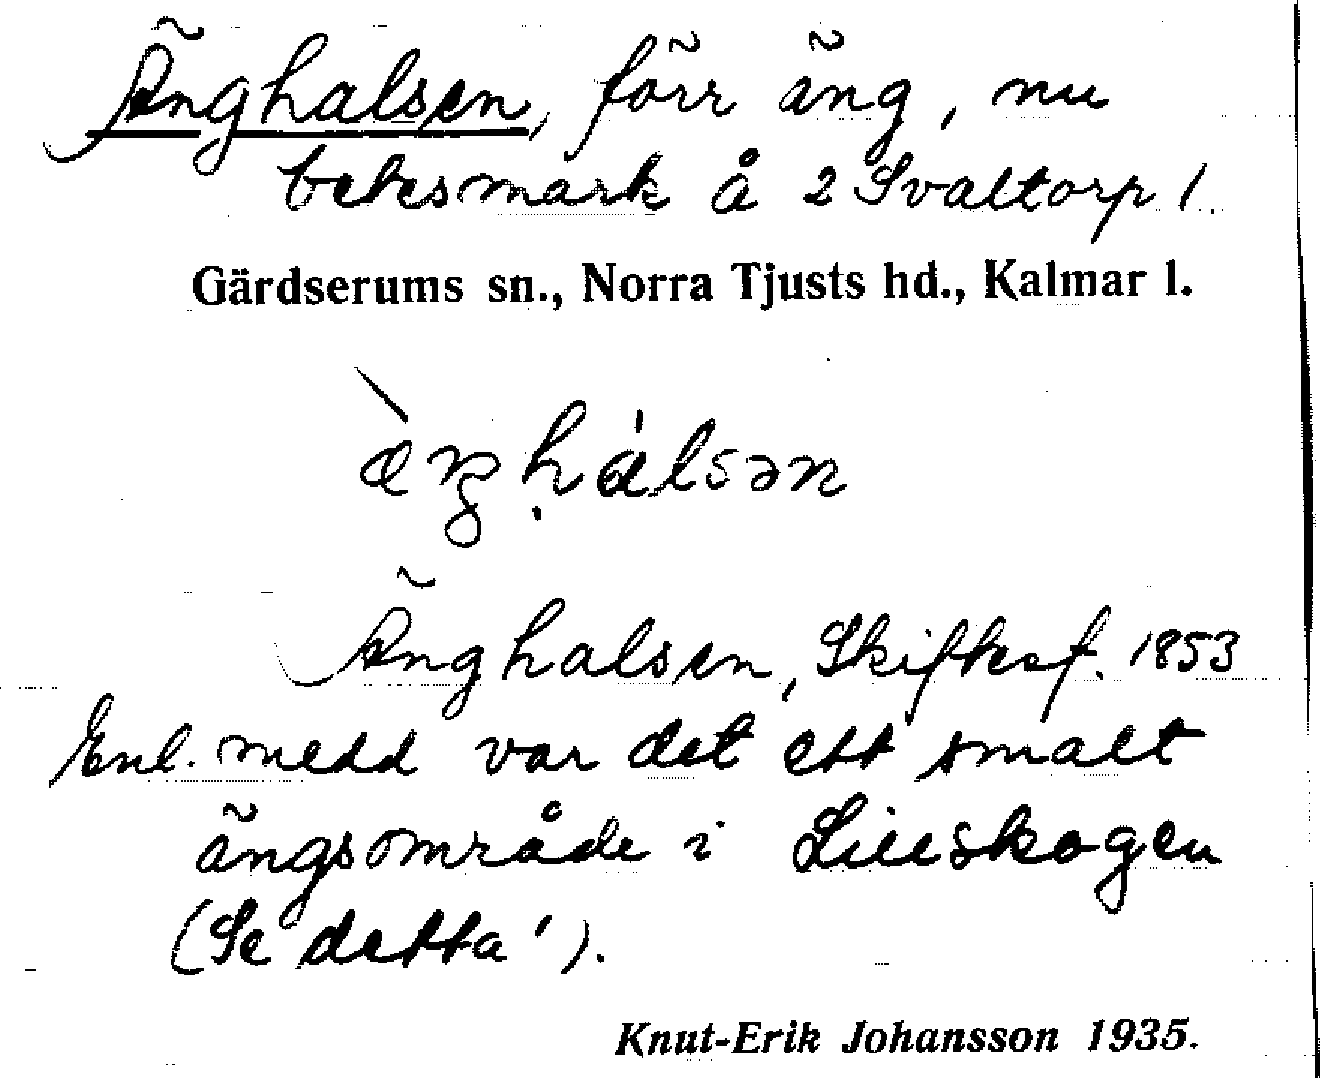 Änghalsen, förr äng, nu
betesmark å 2 Svaltorp 1.
Gärdserums sn., Norra Tjusts hd., Kalmar l.
Änghalsen, Skifkesf. 1853
Enl. medd var det ett smalt
ängsområde i Lilleskogen
(Se detta!).
Knut-Erik Johansson 1935.